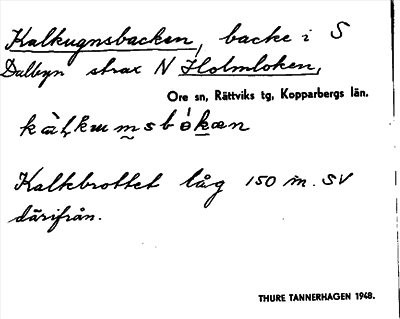 Kalkugnsbacken, backe i S
Dalbyn strax N Holmloken,
Ore sn, Rättviks tg, Kopparbergs län.
Kalkbrottet låg 150 m. SV
därifrån.
THURE TANNERHAGEN 1948.